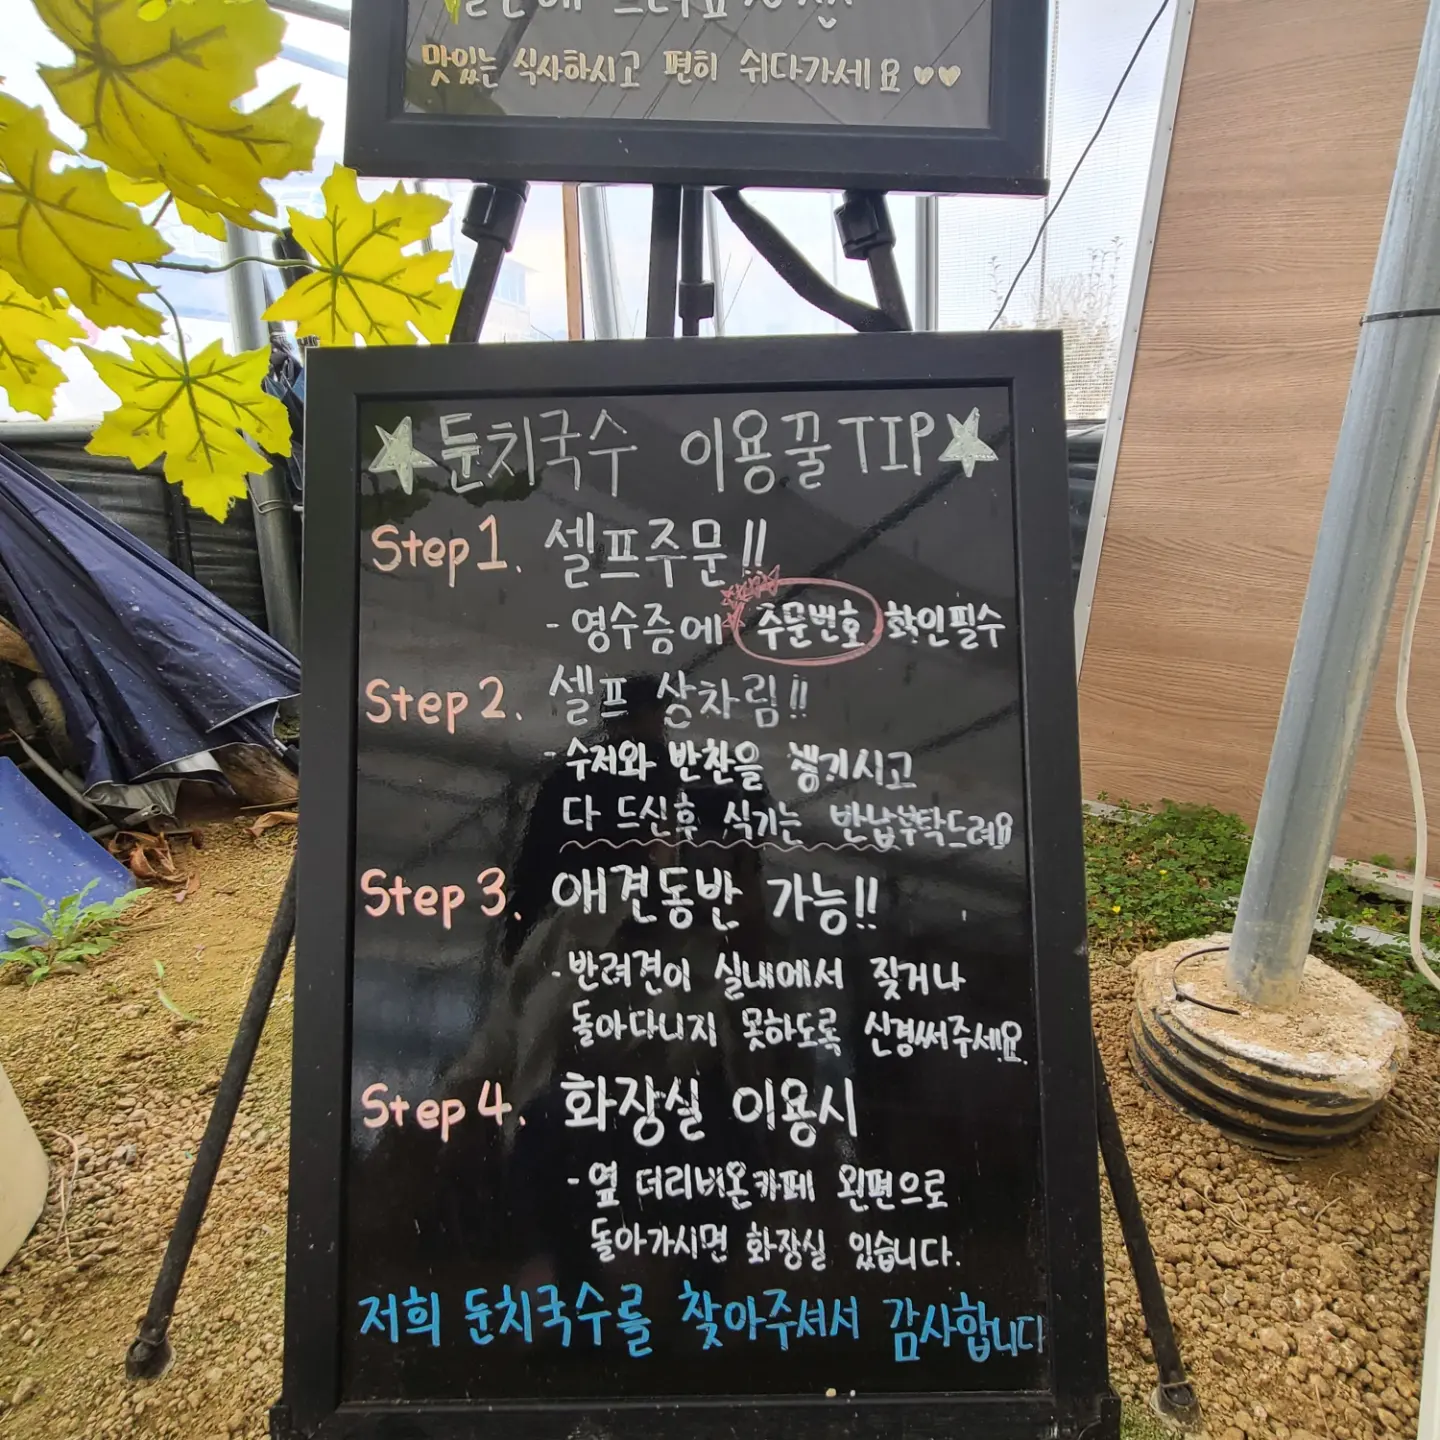 맛있는 식사하시고 편히 쉬다가세요♥♥
★둔치국수 이용꿀TIP★
Step1. 셀프주문!!
- 영수증에 주문번호 확인필수
Step2. 셀프 상차림!!
- 수저와 반찬을 챙기시고
다 드신후 식기는 반납부탁드려요
Step3. 애견동반 가능!!
- 반려견이 실내에서 짖거나
돌아다니지 못하도록 신경써주세요.
Step4. 화장실 이용시
- 옆 더리버온카페 왼편으로
돌아가시면 화장실 있습니다.
저희 둔치국수를 찾아주셔서 감사합니다